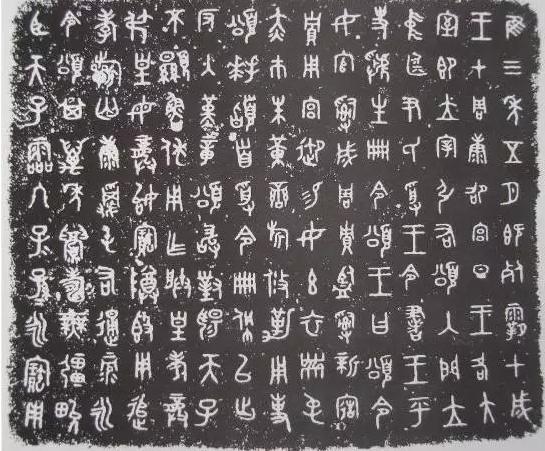 隹三年五月既死霸甲戌
王才周康卲宮旦王各大
室即立宰引右頌入門立
中廷尹氏受王令書王乎
史虢生冊令頌王曰頌令
女官𤔲成周貯監𤔲新造
貯用宮御易女玄衣黹屯
赤巿朱黃鑾旂攸勒用事
頌拜𩒨首受令冊佩以出
反入堇章頌敢對揚天子
不顯魯休用乍朕皇考龏
弔皇母龏始寶尊鼎用追
孝祈匄康𩁹屯右通彔永
令頌其萬年眉壽無疆畯
臣天子霝冬子孫永寶用